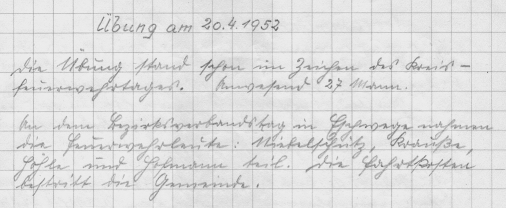 Übung am 20.4.1952
Die Übung stand schon im Zeichen des Kreis-
feuerwehrtages. Anwesend 27 Mann.
An dem Bezirksverbandstag in Eschwege nahmen
die Feuerwehrleute: Nickelschütz, Krauße,
Höhle und Hohmann teil. Die Fahrtkosten
bestritt die Gemeinde.